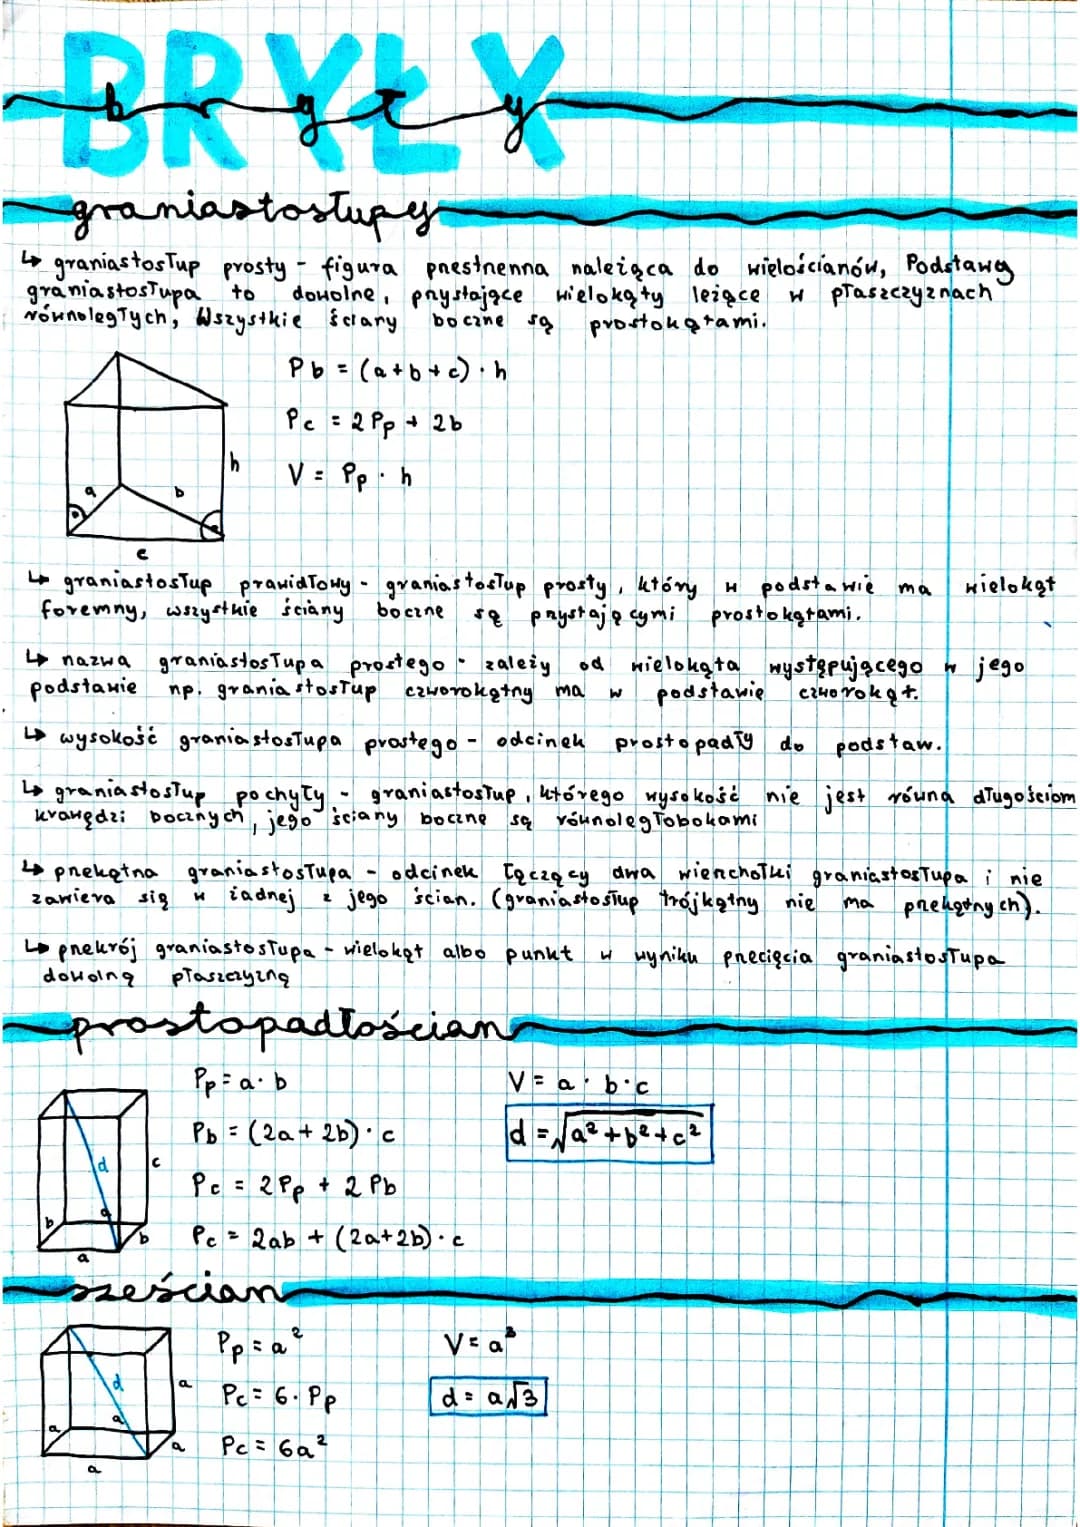 BRYŁY
bryły
graniastosłupy
↳ graniastosłup prosty - figura przestrzenna należąca do wielościanów, Podstawą
graniastosłupa to dowolne, przystające wielokąty leżące w płaszczyznach
równoległych, Wszystkie ściany boczne są prostokątami.
Pb = (a+b+c) · h
Pc = 2Pp + 2b
h
V = Pp · h
a
b
c
↳ graniastosłup prawidłowy - graniastosłup prosty, który w podstawie ma wielokąt
foremny, wszystkie ściany boczne są przystającymi prostokątami.
↳ nazwa graniastosłupa prostego - zależy od wielokąta występującego w jego
podstawie np. graniastosłup czworokątny ma w podstawie czworokąt.
↳ wysokość graniastosłupa prostego - odcinek prostopadły do podstaw.
↳ graniastosłup pochyły - graniastosłup, którego wysokość nie jest równa długościom
krawędzi bocznych, jego ściany boczne są równoległobokami
↳ przekątna graniastosłupa - odcinek łączący dwa wierzchołki graniastosłupa i nie
zawiera się w żadnej z jego ścian. (graniastosłup trójkątny nie ma przekątnych).
↳ przekrój graniastosłupa - wielokąt albo punkt w wyniku przecięcia graniastosłupa
dowolną płaszczyzną
prostopadłościan
Pp = a · b
V = a · b · c
Pb = (2a + 2b) · c
d = √a² + b² + c²
d
c
Pc = 2Pp + 2Pb
b
a
b
Pc = 2ab + (2a+2b) · c
a
sześcian
Pp = a²
V = a³
d
a
Pc = 6 · Pp
d = a√3
a
a
a
Pc = 6a²
a